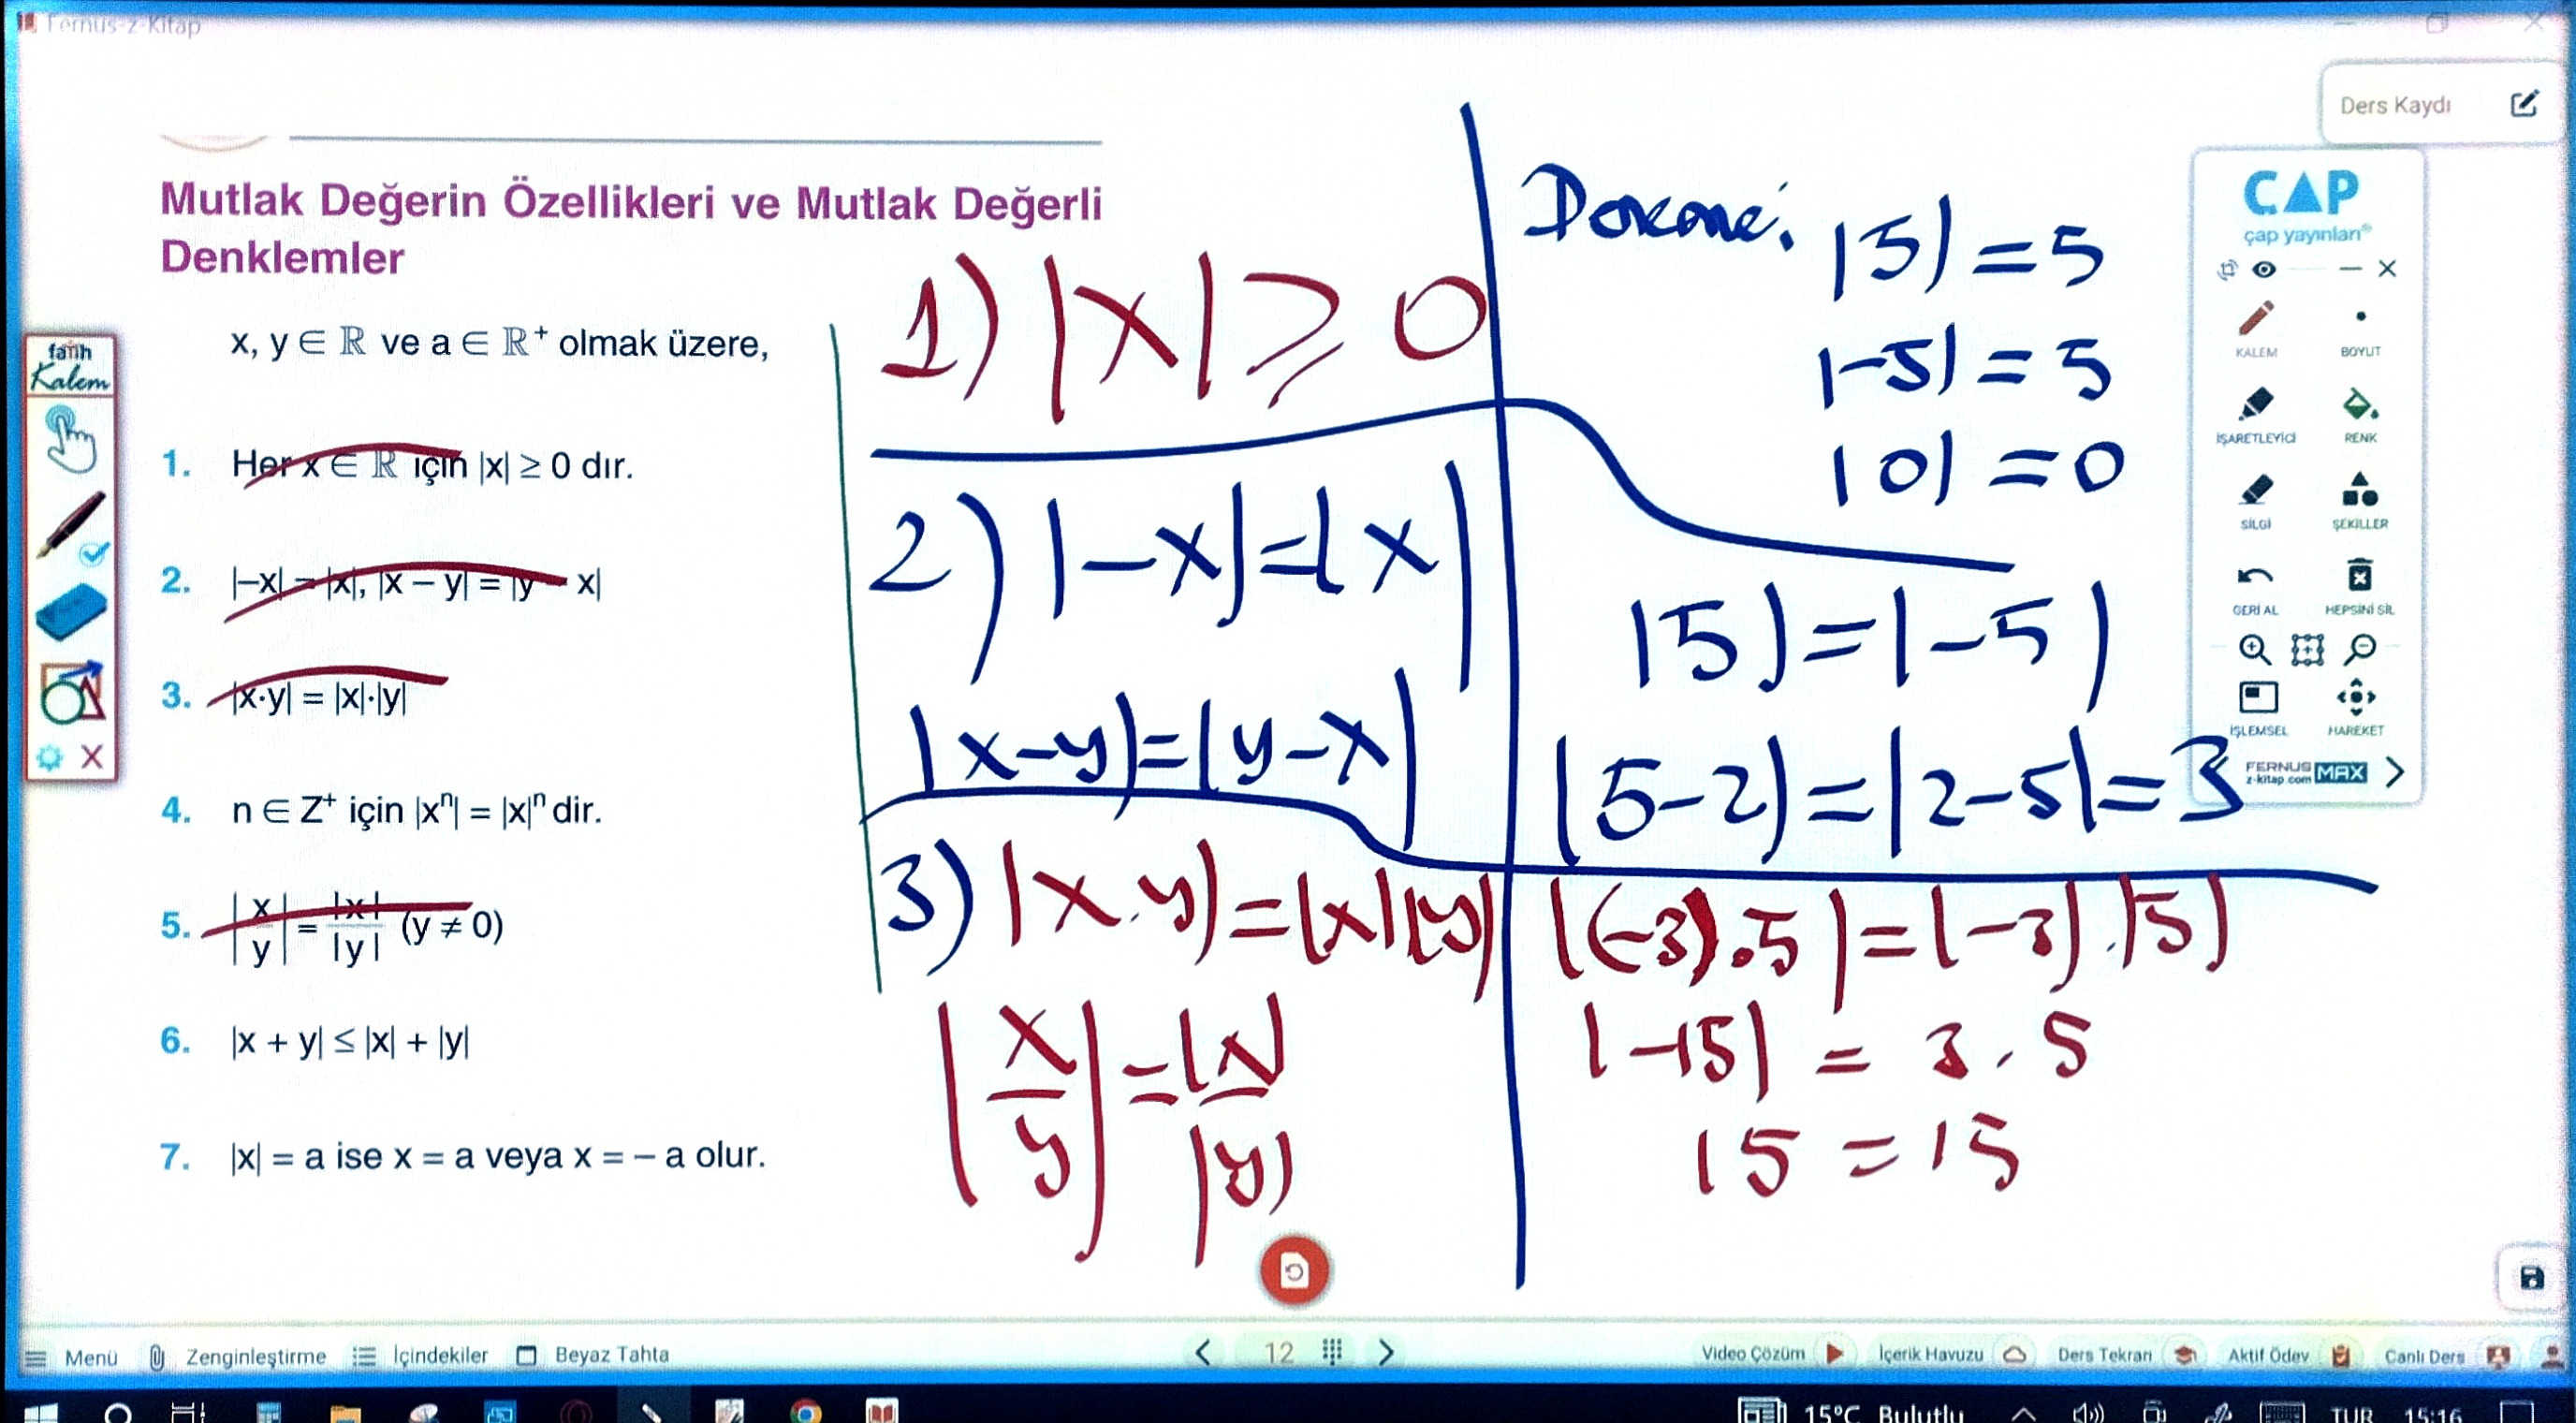 Fernus-z-Kitap
Ders Kaydı
Mutlak Değerin Özellikleri ve Mutlak Değerli
Denklemler
x, y ∈ ℝ ve a ∈ ℝ⁺ olmak üzere,
1. Her x ∈ ℝ için |x| ≥ 0 dır.
2. |–x| = |x|, |x – y| = |y – x|
3. |x·y| = |x|·|y|
4. n ∈ Z⁺ için |xⁿ| = |x|ⁿ dir.
5. |x/y| = |x|/|y| (y ≠ 0)
6. |x + y| ≤ |x| + |y|
7. |x| = a ise x = a veya x = – a olur.
1) |x| ≥ 0
2) |-x| = |x|
|x-y| = |y-x|
3) |x.y| = |x||y|
|x/y| = |x|/|y|
|5| = 5
|-5| = 5
|0| = 0
|5| = |-5|
|5-2| = |2-5| = 3
|(-3).5| = |-3|.|5|
|-15| = 3.5
15 = 15
fatih
Kalem
ÇAP
çap yayınları®
KALEM
BOYUT
İŞARETLEYİCİ
RENK
SİLGİ
ŞEKİLLER
GERİ AL
HEPSİNİ SİL
İŞLEMSEL
HAREKET
FERNUS
z-kitap.com MAX
Menü
Zenginleştirme
İçindekiler
Beyaz Tahta
12
Video Çözüm
İçerik Havuzu
Ders Tekrarı
Aktif Ödev
Canlı Ders
15°C Bulutlu
TUR
15:16